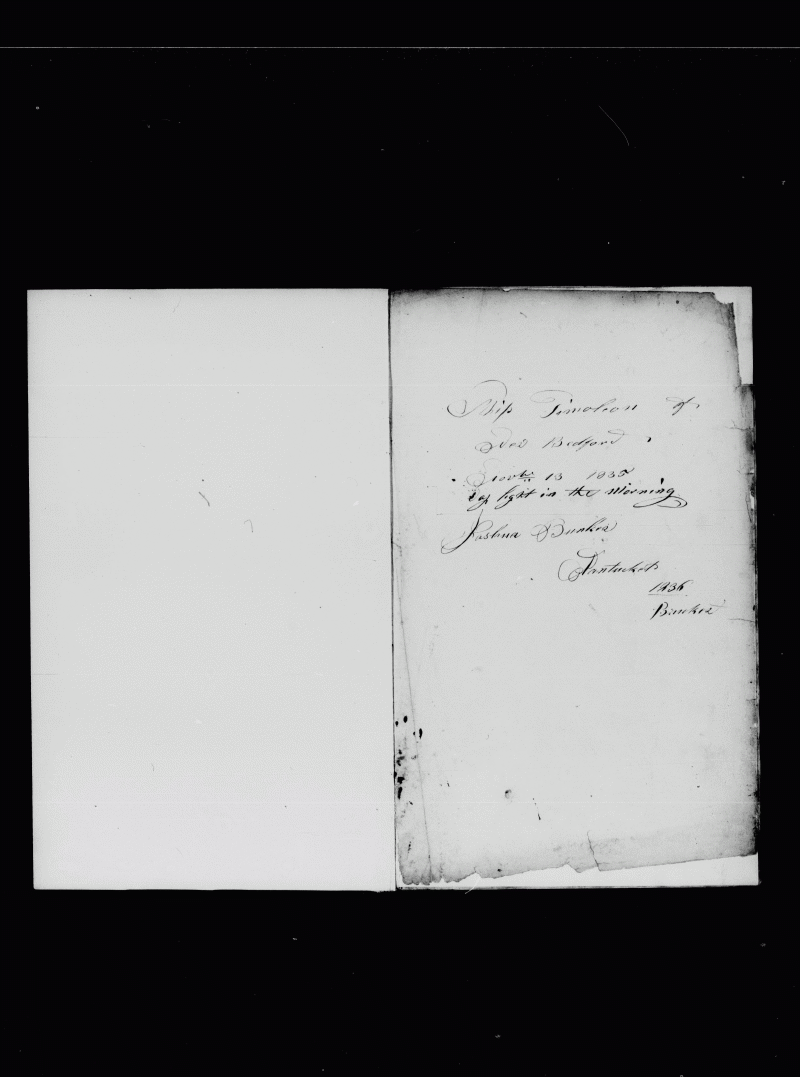 Ship Timoleon of
New Bedford
Novbr 13 1835
day light in the morning
Joshua Bunker
Nantucket
1836
Bunker